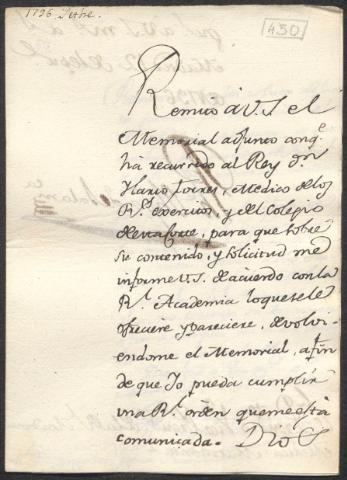 1796 Setre.
430
Remito à V.S. el
Memorial adjunto con qe
ha recurrido al Rey Dn
Ilario Torres, Medico de los
Rs exercitos, y del Colegio
de esta Corte, para que sobre
su contenido, y solicitud me
informe V.S. de acuerdo con la
Rl Academia lo que se le
ofreciere y pareciere, devolvi-
endome el Memorial, a fin
de que Yo pueda cumplir
una Rl orden que me està
comunicada. Dios